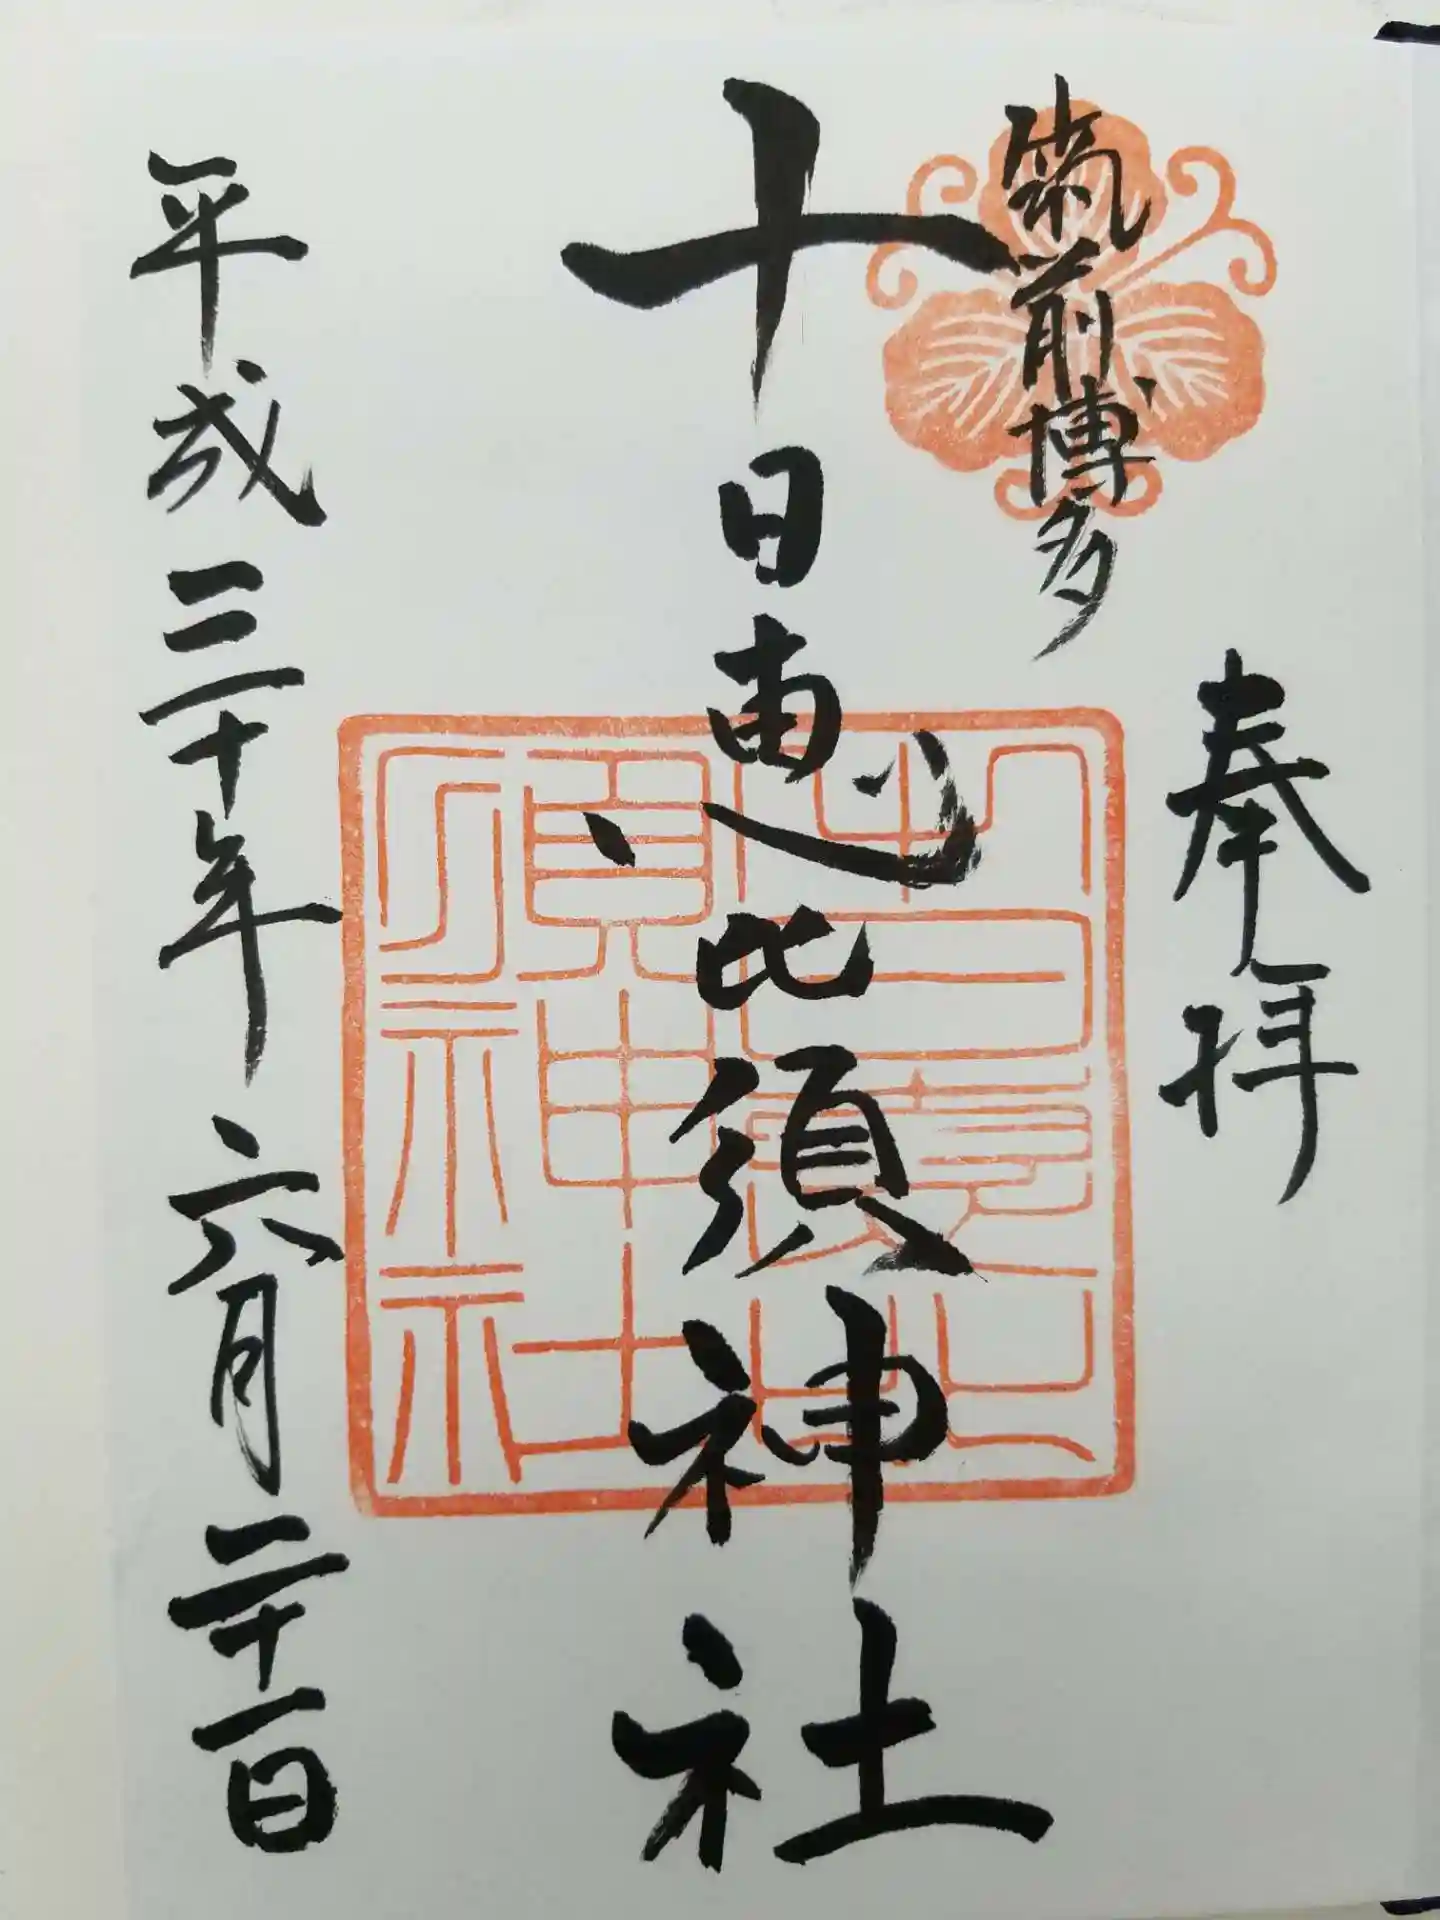 奉拝
筑前博多
十日恵比須神社
平成三十年六月二十一日
十日恵比須神社